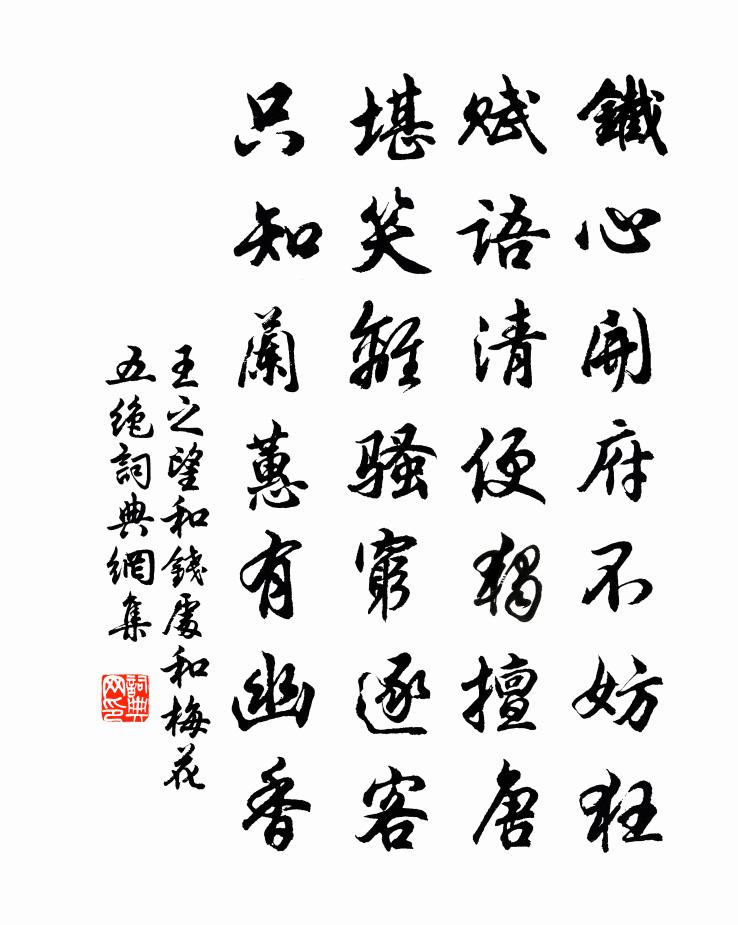 鐵心開府不妨狂
賦語清便獨擅唐
堪笑離騷窮逐客
只知蘭蕙有幽香
王之望和錢處和梅花
五絕詞典網集
詞典網印